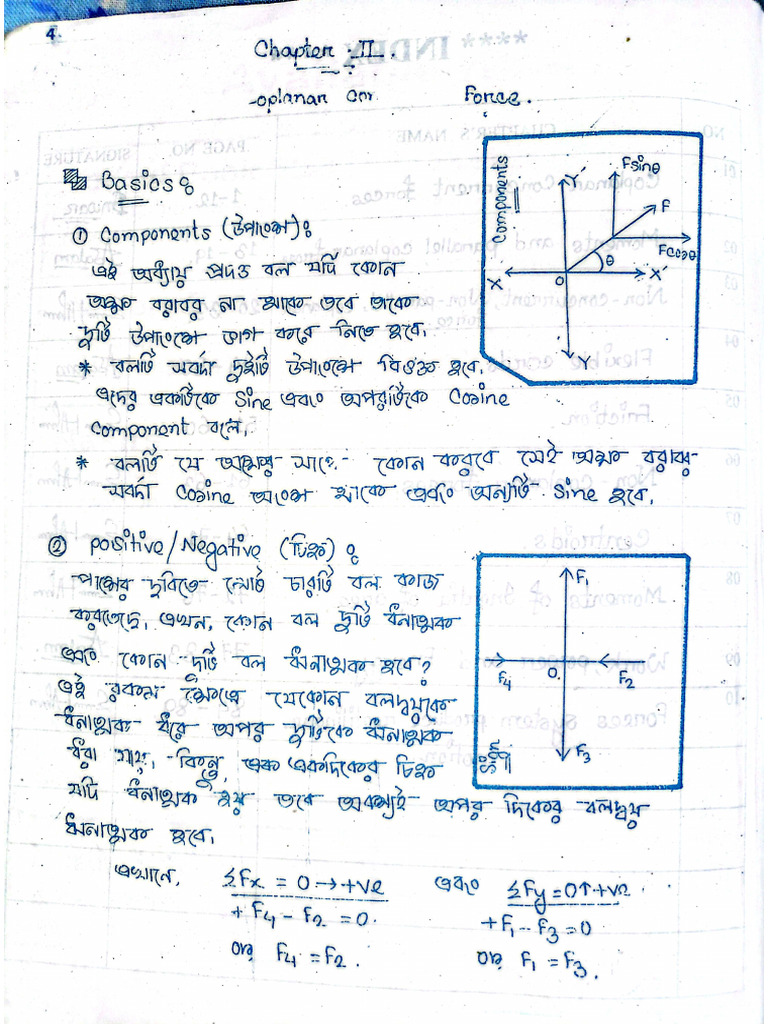 4.
Chapter II.
-oplanar Con Force.
Basics:
① Components (উপাংশ):
এই অধ্যায় প্রদত্ত বল যদি কোন
অক্ষ বরাবর না থাকে তবে তাকে
দুটি উপাংশে ভাগ করে নিতে হবে.
* বলটি সবর্দা দুইটি উপাংশে বিভক্ত হবে.
এদের একটিকে Sine এবং অপরটিকে Cosine
Component বলে.
* বলটি যে অক্ষের সাথে কোন করবে সেই অক্ষ বরাবর
সবর্দা Cosine অংশ থাকে এবং অন্যটি Sine হবে.
Components
Y'
Fsinθ
F
Fcosθ
θ
X
O
X'
Y
② Positive/Negative (চিহ্ন):
পাশের ছবিতে মোট চারটি বল কাজ
করতেছে, এখন, কোন বল দুটি ধনাত্মক
এবং কোন দুটি বল ঋনাত্মক হবে?
এই রকম ক্ষেত্রে যেকোন বলদ্বয়কে
ধনাত্মক ধরে অপর দুটিকে ঋনাত্মক
ধরা যায়, কিন্তু, এক একদিকের চিহ্ন
যদি ধনাত্মক হয় তবে অবশ্যই অপর দিকের বলদ্বয়
ঋনাত্মক হবে.
F₁
F₄
O.
F₂
F₃
চিহ্ন
এখানে, ΣFx = 0 →+ve এবং ΣFy = 0↑+ve
+F₄ - F₂ = 0. +F₁ - F₃ = 0
or F₄ = F₂. or F₁ = F₃.